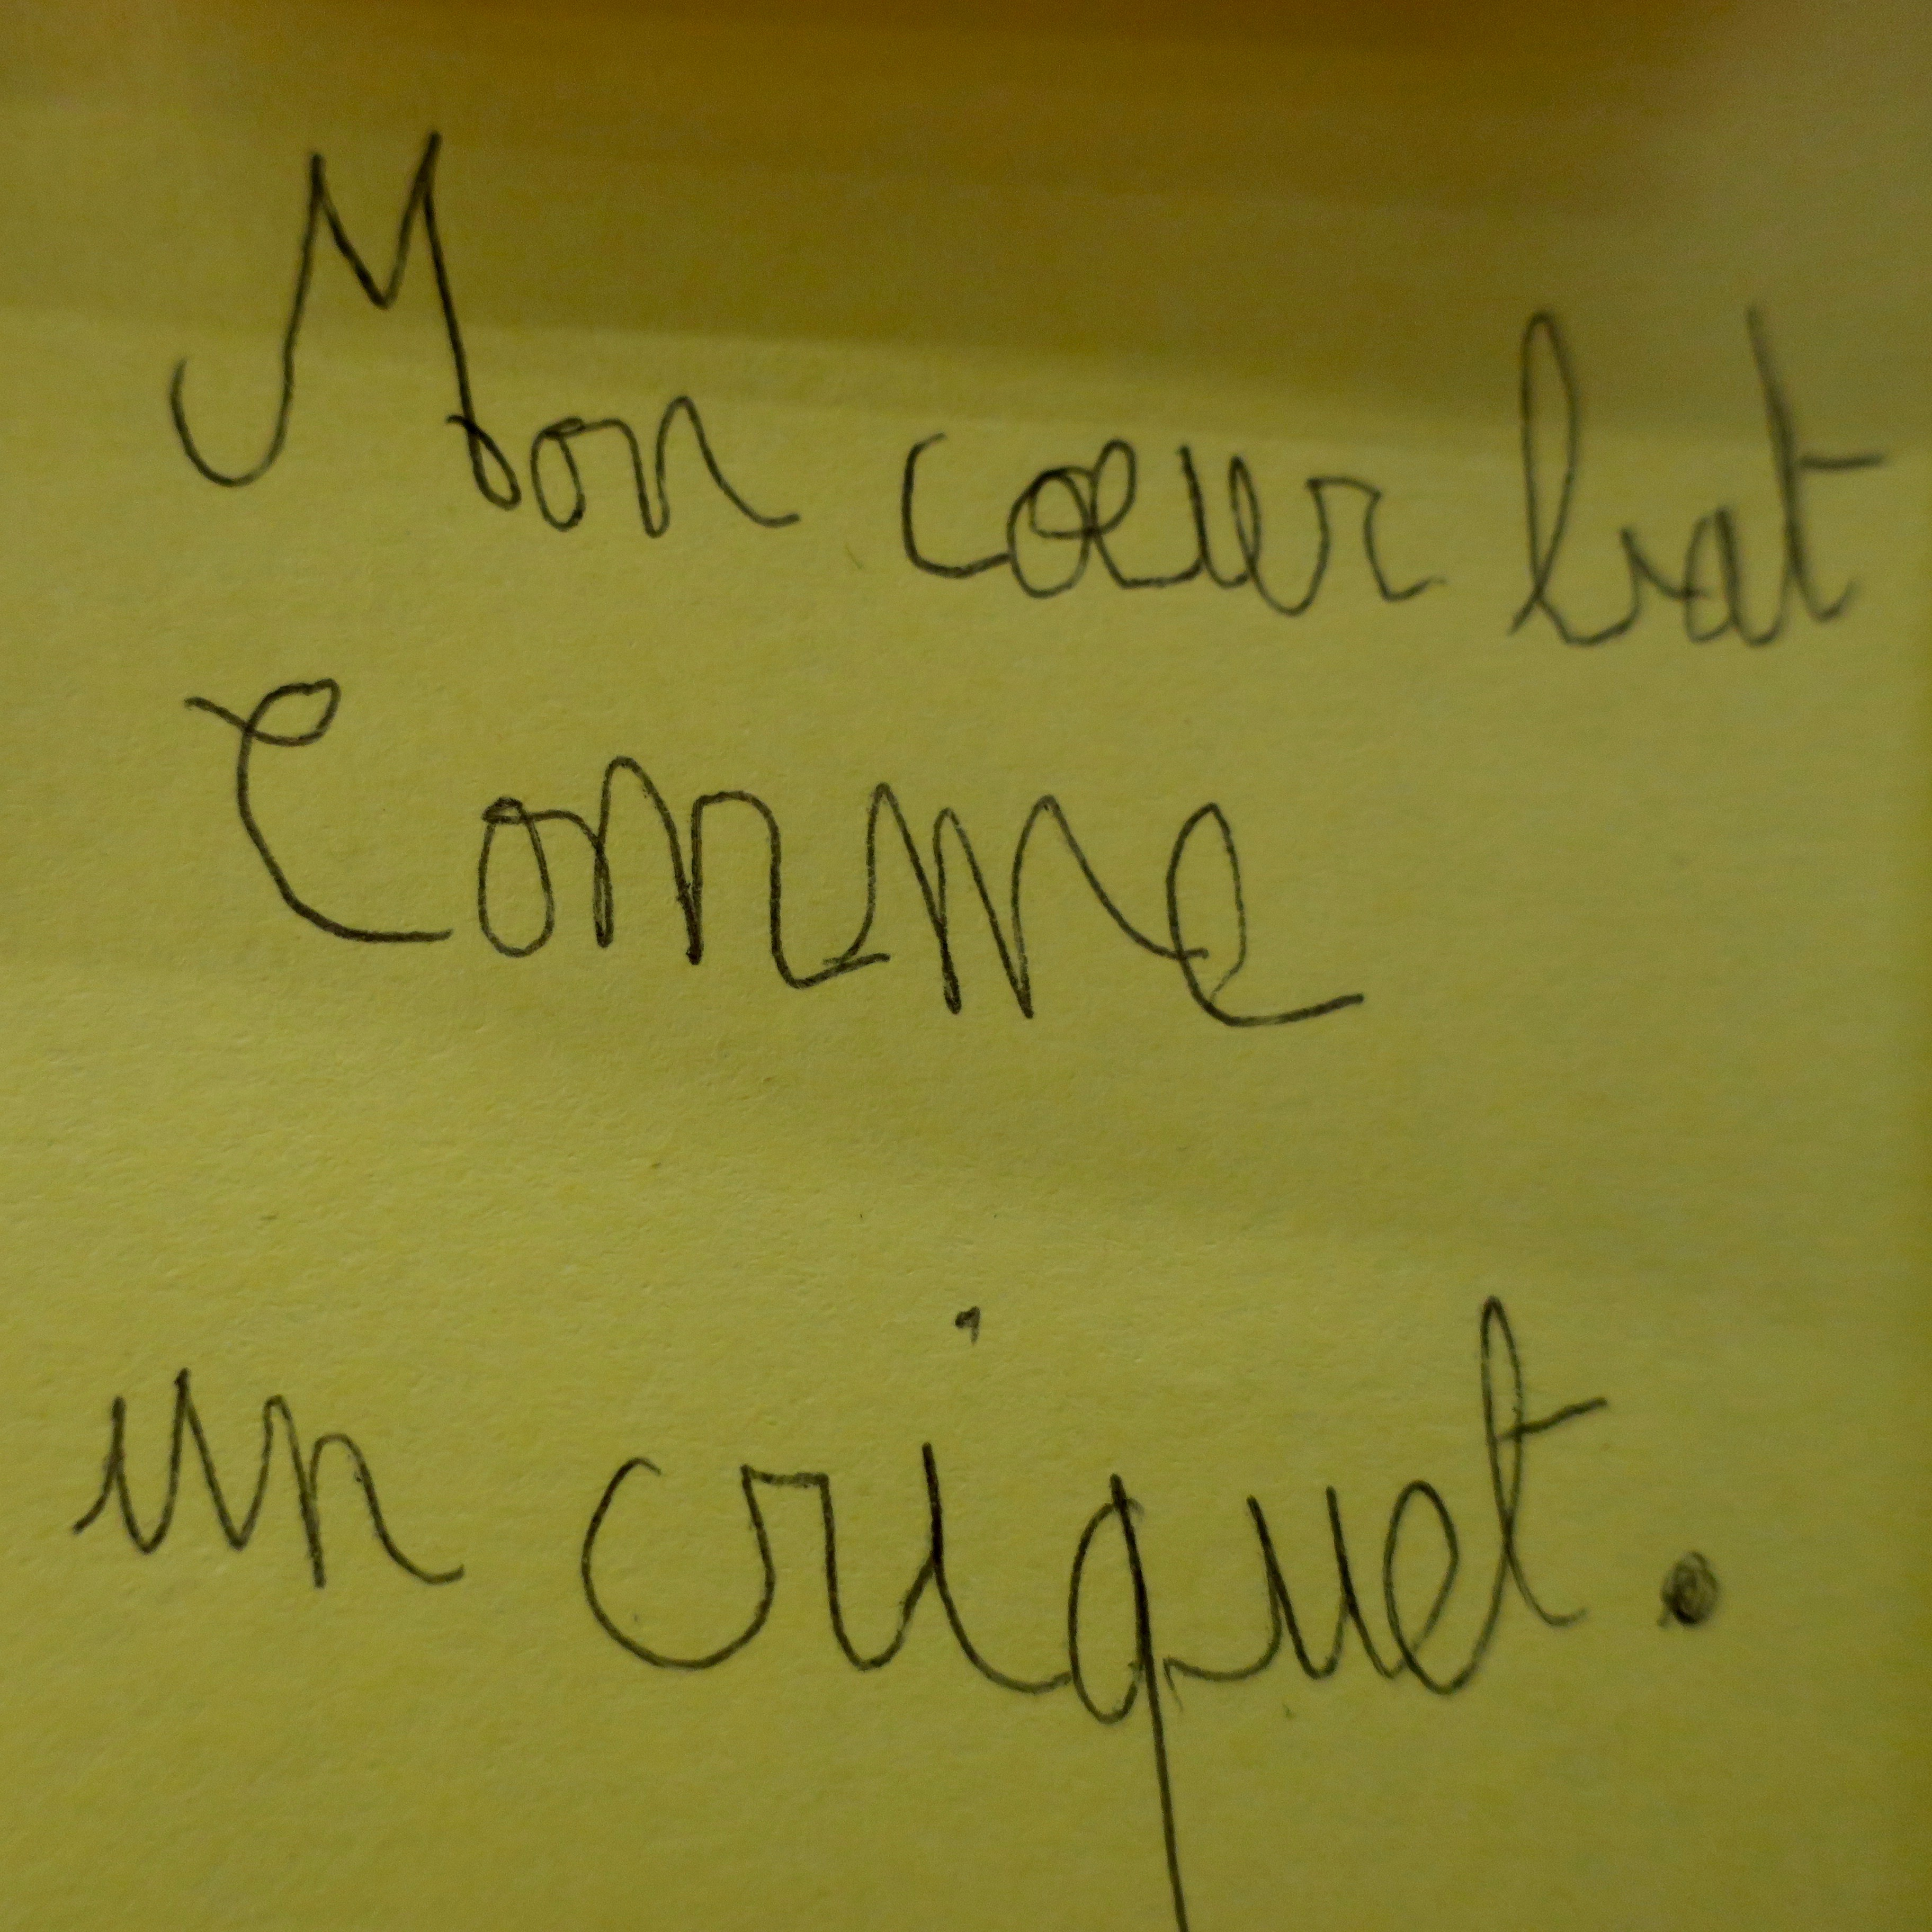 Mon cœur bat
Comme
un criquet.